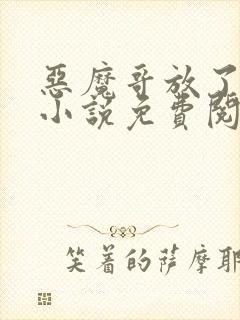 惡魔哥放了
小說免費閱
笑着的薩摩耶